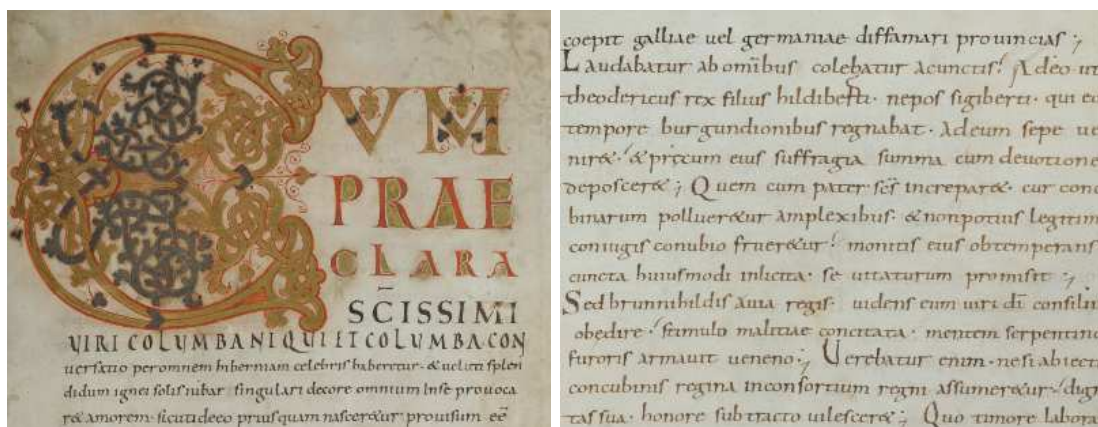 CUM
PRAE
CLARA
SCISSIMI
VIRI COLUMBANI QUI ET COLUMBA CON
uersatio per omnem hiberniam celebris haberetur · & ueluti splen
didum ignei solis iubar · singulari decore omnium inse prouoca
r& amorem · sicut ideeo priusquam nascer&ur · prouisum eē
coepit galliae uel germaniae diffamari prouincias ;
Laudabatur ab omībus colebatur a cunctis. Adeo ut
theodericus rex filius hildiberti · nepos sigiberti · qui eo
tempore burgundionibus regnabat · ad eum sepe ue
nir& · & precum eius suffragia summa cum deuotione
deposcer& ; Quem cum pater scs increpar& · cur conc
binarum pollueretur amplexibus · & non potius legitim
coniugis conubio fruer&ur · monitis eius obtemperans
cuncta huiusmodi inlicita · se uitaturum promisit ;
Sed brunnihildis auia regis · uidens eum uiri dī consiliis
obedire · stimulo malitiae concitata · mentem serpentino
furoris armauit ueneno ; Uerebatur enim · nesi abiecti
concubinis regina inconsortium regni assumer&ur · dign
tas sua · honore subtracto uilescer& ; Quo timore labora